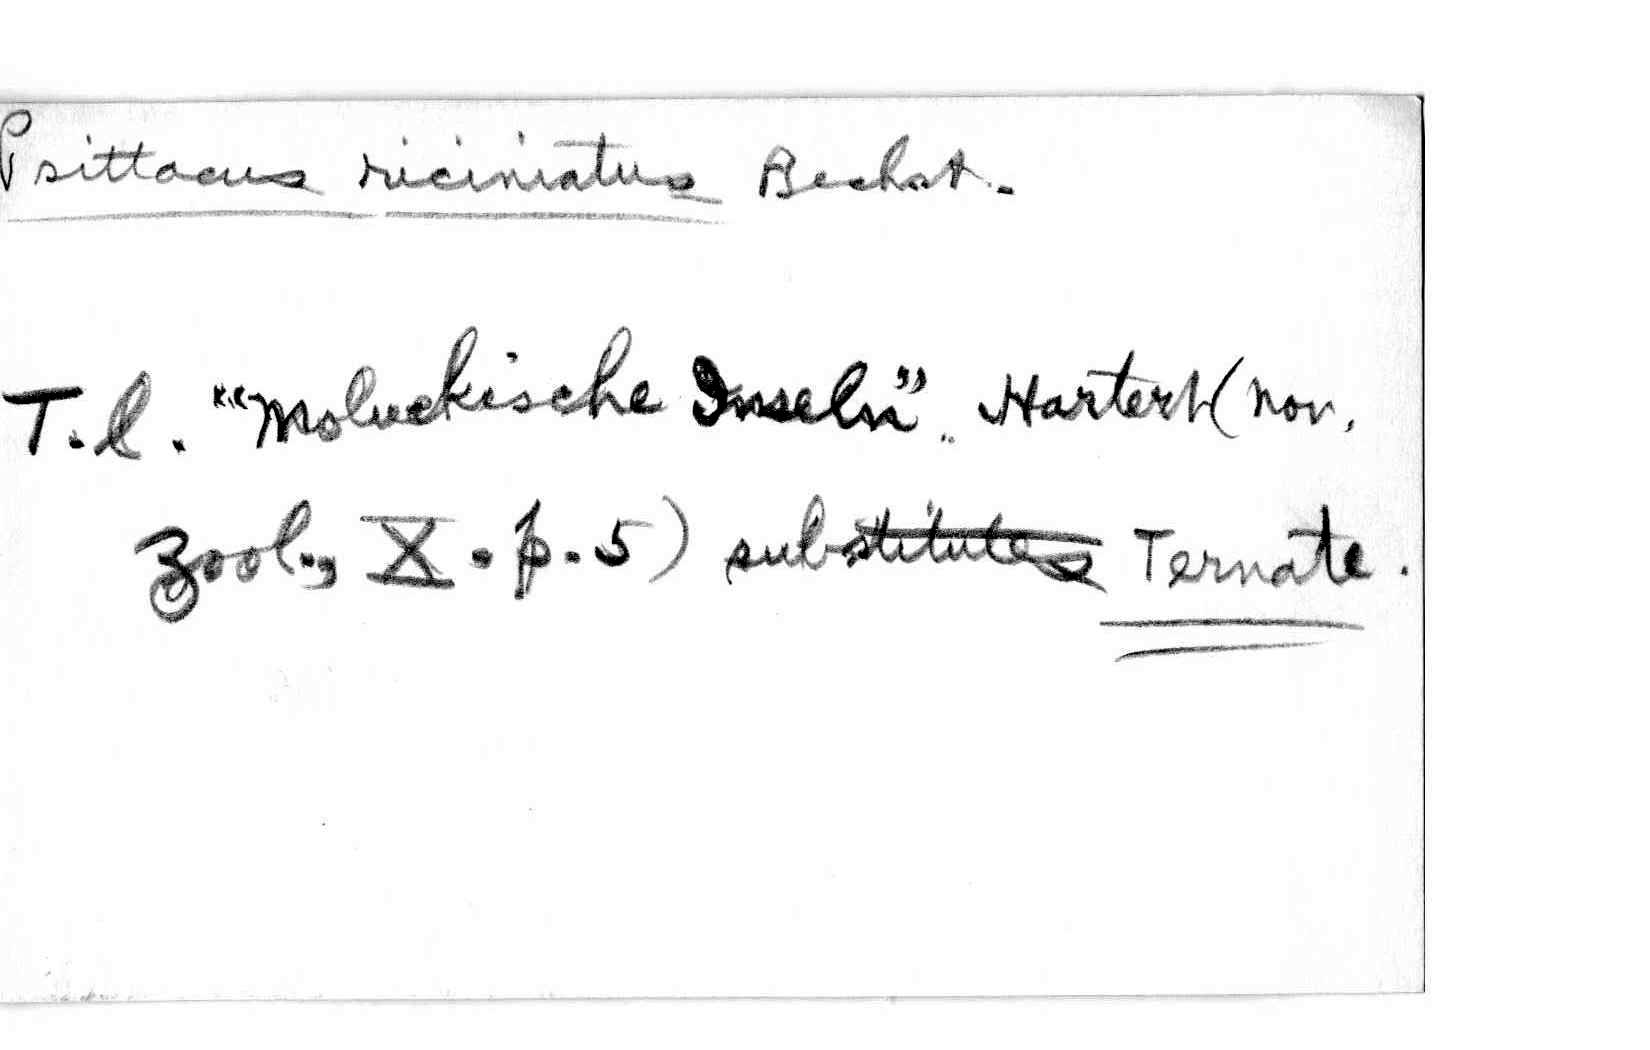 Psittacus riciniatus Bechst.
T.l. "Moluckische Inseln". Hartert (Nov.
Zool., X. p. 5) substitutes Ternate.